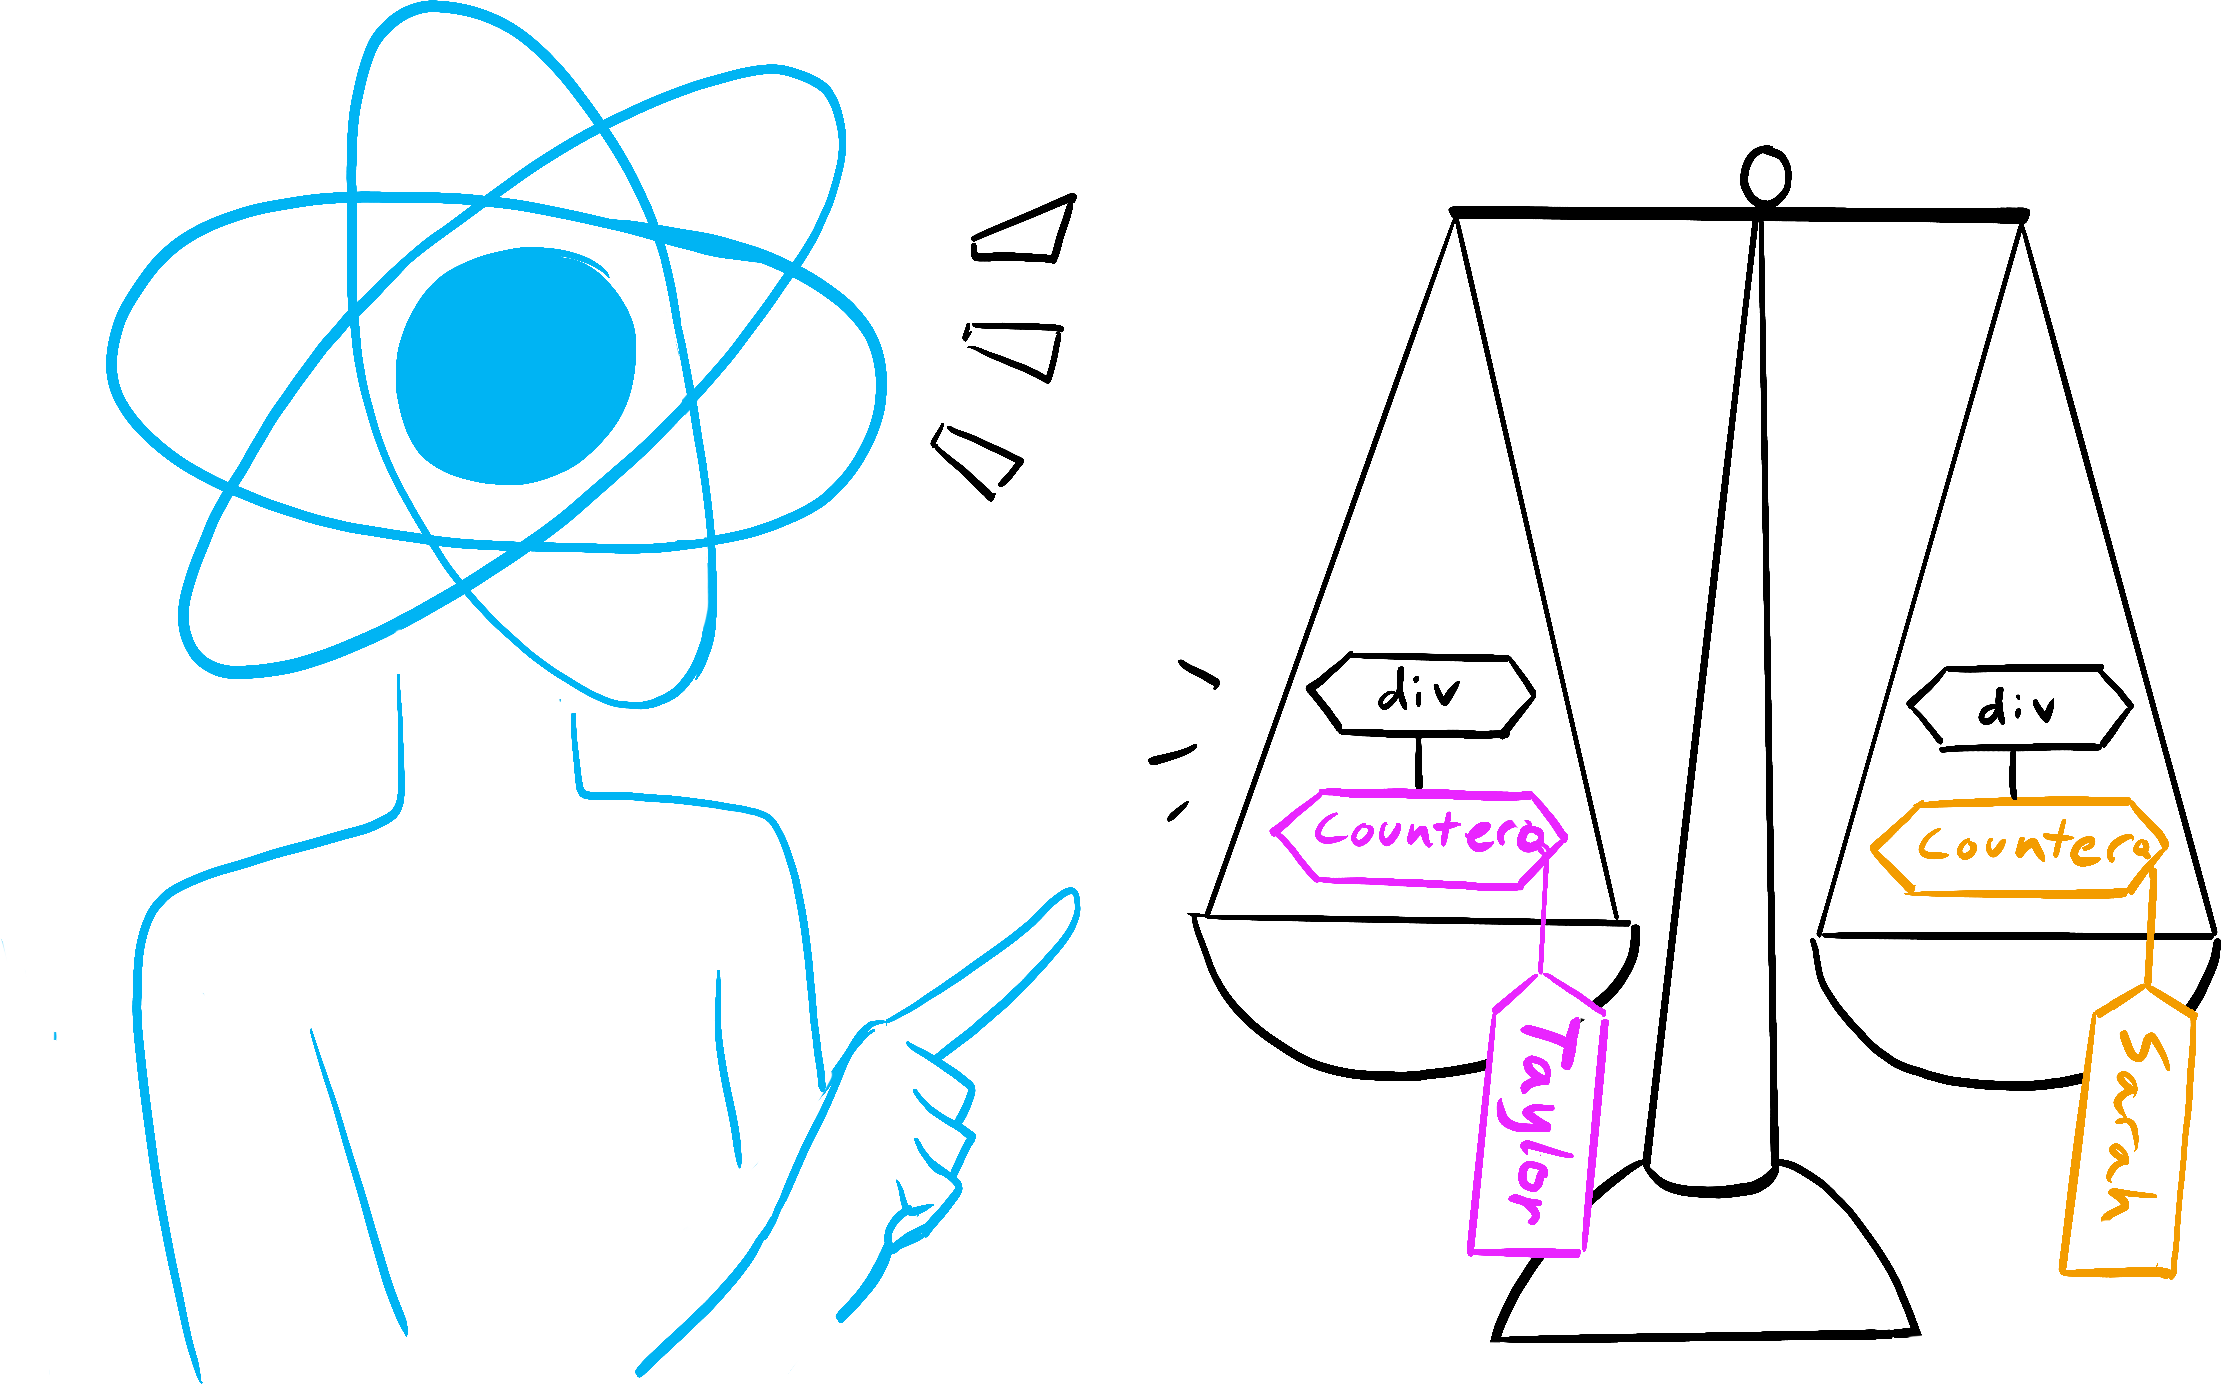 div
Counter
Taylor
div
Counter
Sarah